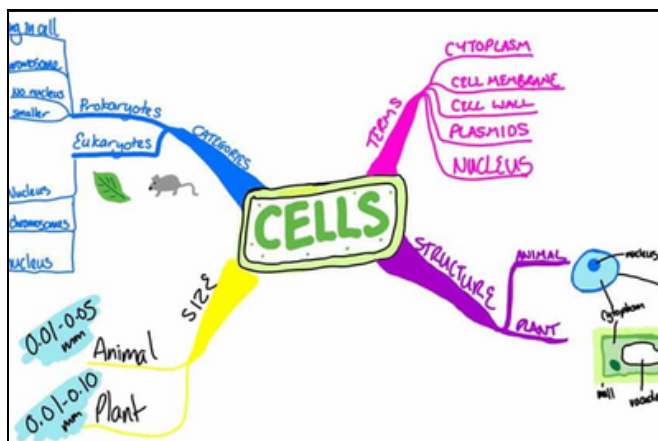 CELLS
CATEGORIES
Prokaryotes
No nucleus
smaller
Eukaryotes
Nucleus
chromosomes
nucleus
TERMS
CYTOPLASM
CELL MEMBRANE
CELL WALL
PLASMIDS
NUCLEUS
STRUCTURE
ANIMAL
nucleus
Cytoplasm
PLANT
SIZE
0.01-0.05
mm
Animal
0.01-0.10
mm
Plant